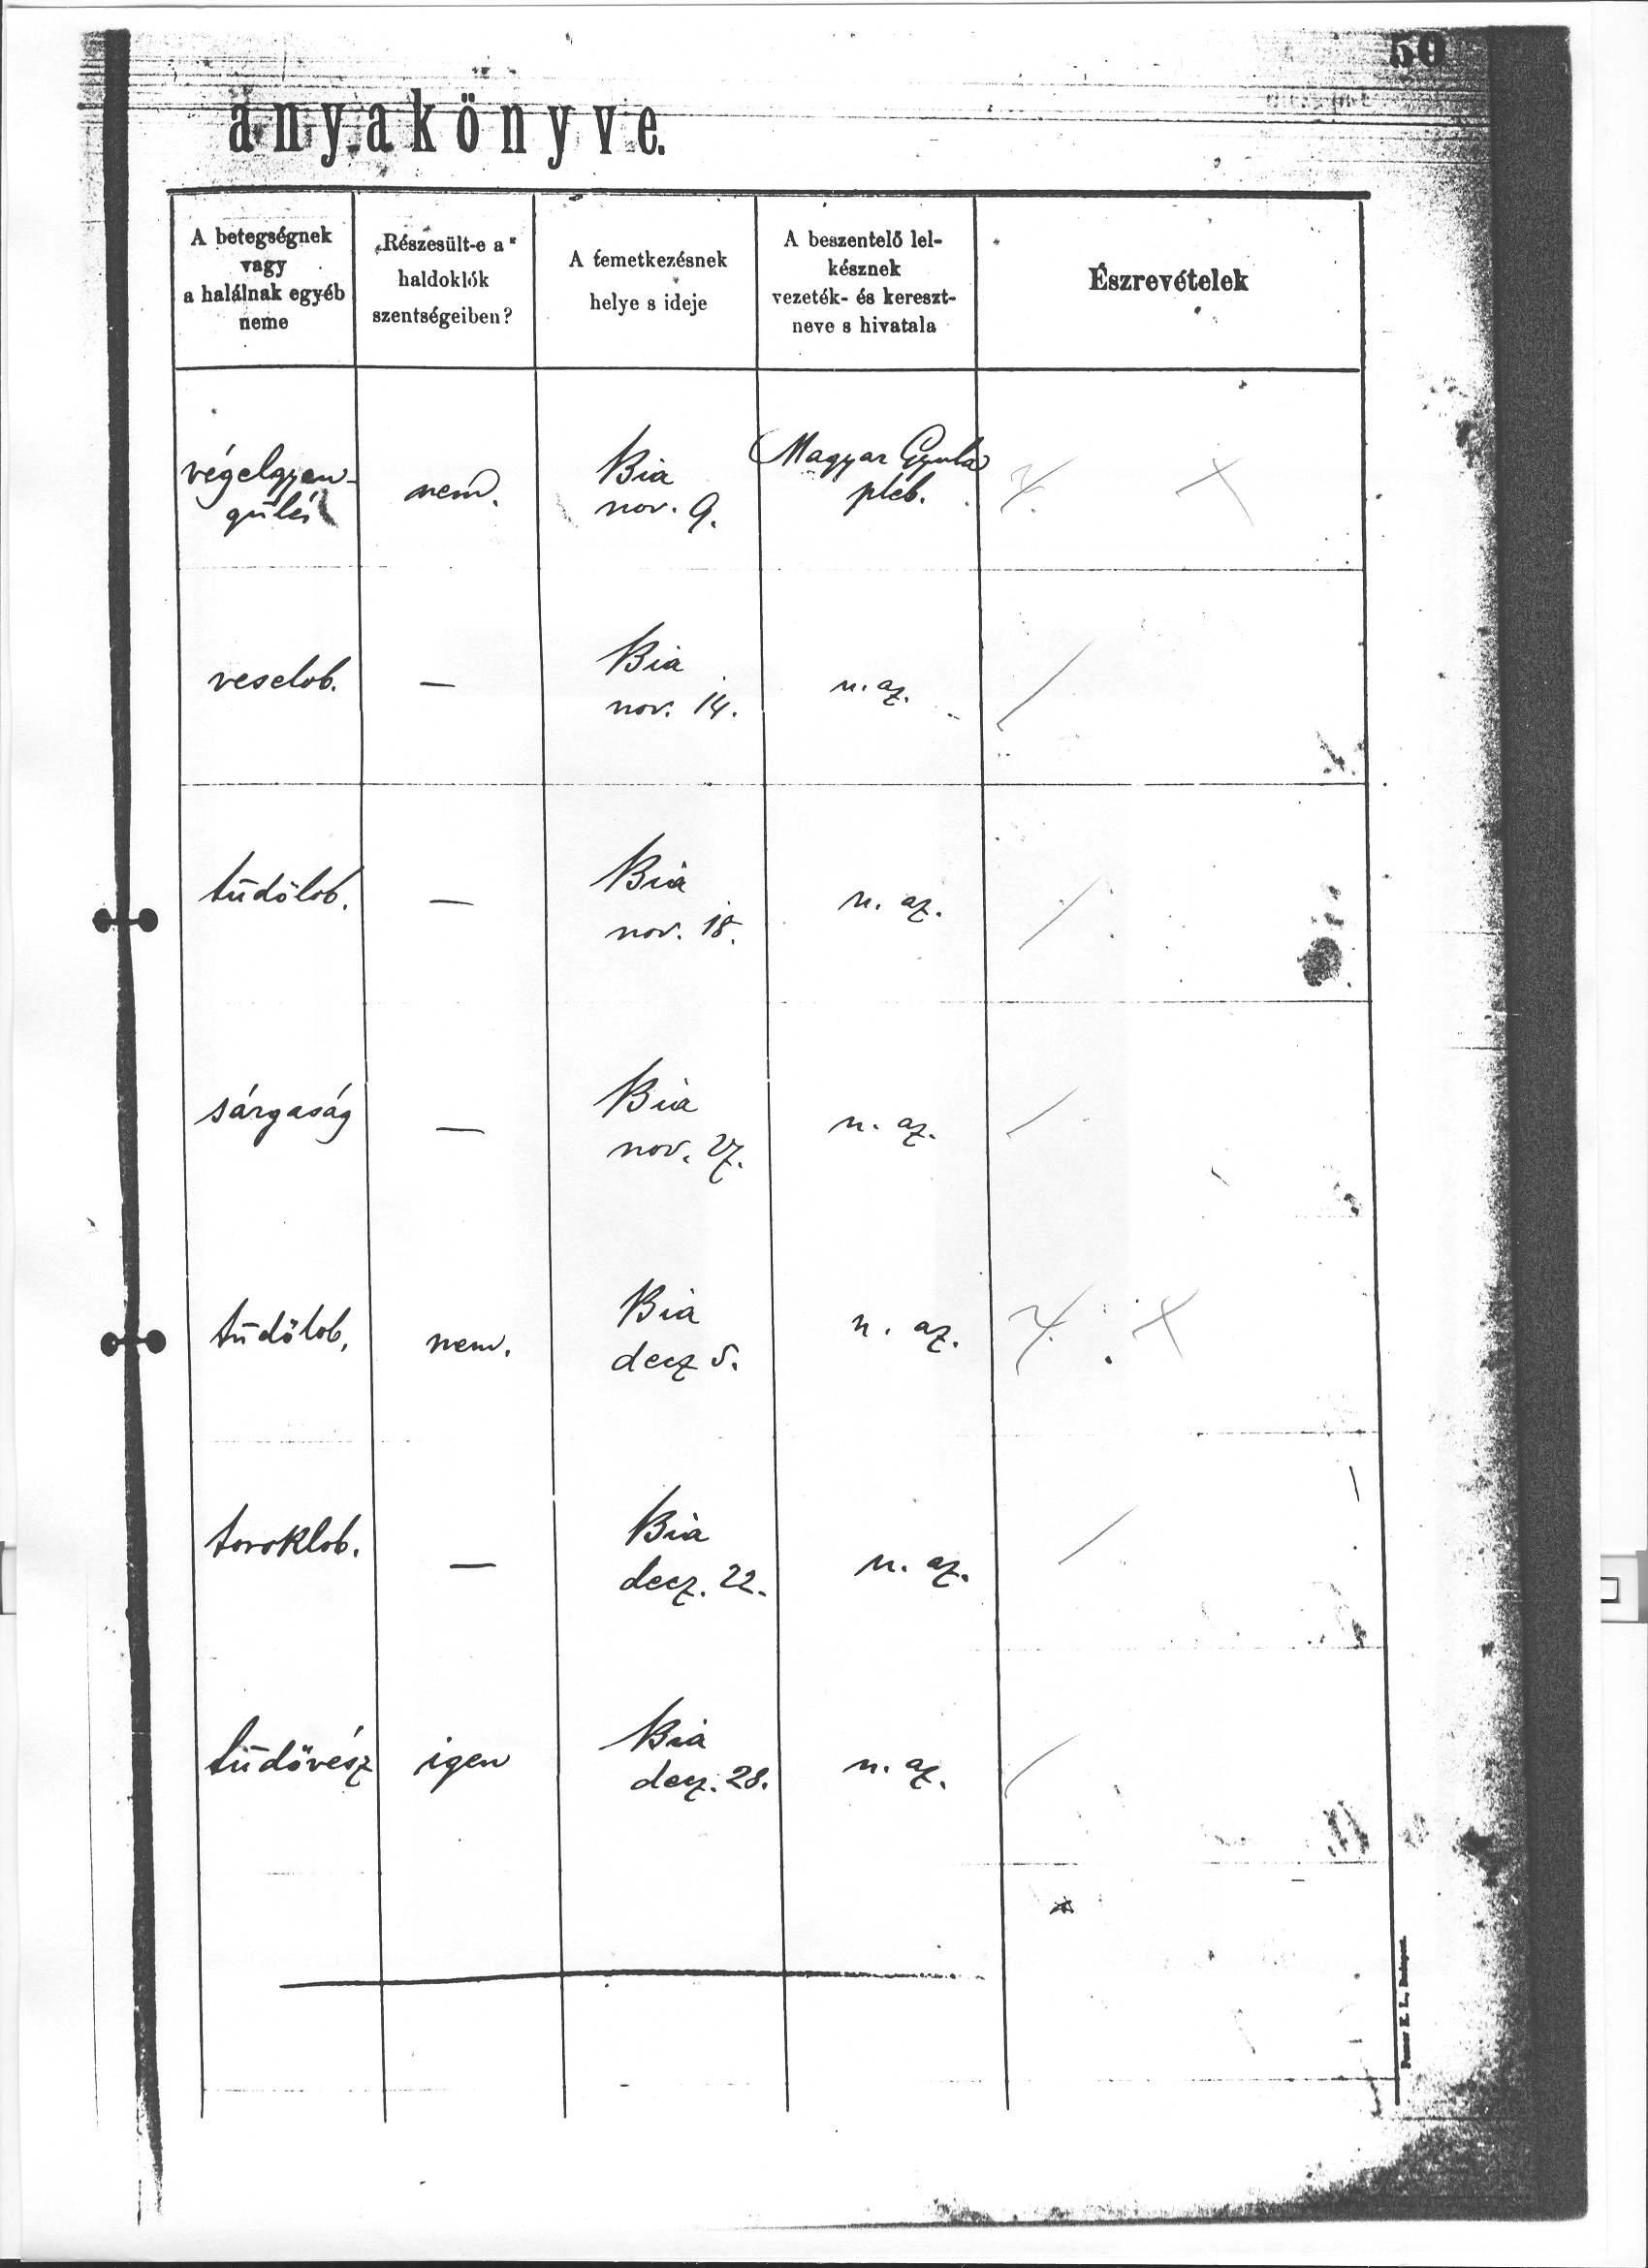 50
anyakönyve.
A betegségnek
vagy
a halálnak egyéb
neme
Részesült-e a
haldoklók
szentségeiben?
A temetkezésnek
helye s ideje
A beszentelő lel-
késznek
vezeték- és kereszt-
neve s hivatala
Észrevételek
végelgyen-
gülés
nem.
Bia
nov. 9.
Magyar Gyula
pléb.
veselob.
—
Bia
nov. 14.
u. az.
tüdőlob.
—
Bia
nov. 18.
u. az.
sárgaság
—
Bia
nov. 27.
u. az.
tüdőlob.
nem.
Bia
decz 5.
u. az.
toroklob.
—
Bia
decz. 22.
u. az.
tüdővész
igen
Bia
decz. 28.
u. az.
E. L., Budapest.